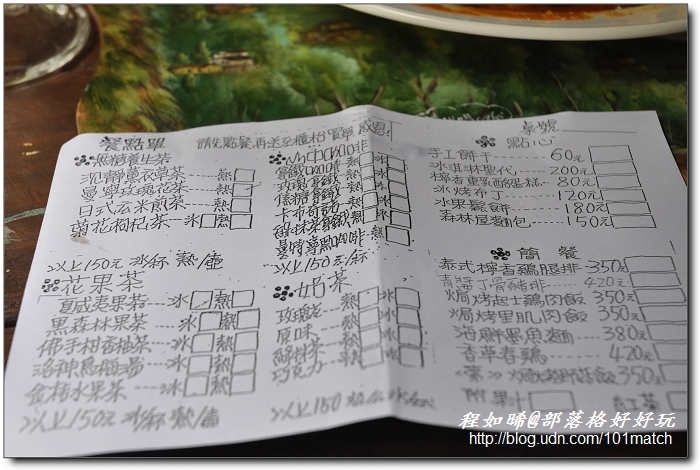 餐點單
請先點餐,再送至櫃枱買單,感恩!
桌號
無糖養生茶
沉靜薰衣草茶----熱
曼寧玫瑰花茶---熱
日式玄米煎茶---熱
菊花枸杞茶---冰 熱
以上150元 冰/杯 熱/壺
花果茶
夏威夷果茶---冰 熱
黑森林果茶---冰 熱
佛手柑香柚茶---冰 熱
洛神烏梅湯---冰 熱
金桔水果茶---冰 熱
以上150元 冰/杯 熱/壺
咖啡
卡布奇諾
曼特寧
以上150元/杯
奶茶
玫瑰花---冰 熱
原味---冰 熱
巧克力---冰 熱
以上150
點心
手工餅干---60元
冰淇琳聖代---200元
檸香重乳酪蛋糕---80元
冰烤布丁---120元
水果鬆餅---180元
森林屋麵包---150元
簡餐
泰式檸香雞腿排---350元
420元
焗烤起士雞肉飯---350元
焗烤里肌肉飯---350元
海鮮墨魚麵---380元
香草春雞---420元
350元
附:果汁 紅茶
程如晞@部落格好好玩
http://blog.udn.com/101match